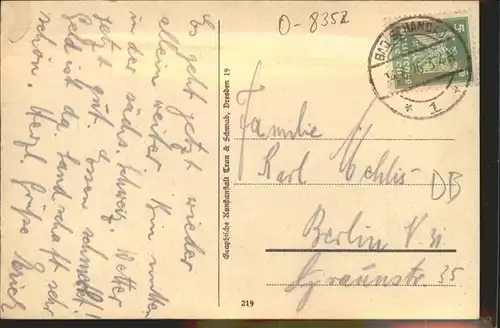 Es geht jetzt wieder
allein weiter. Bin mitten
in der sächs. Schweiz. Wetter
jetzt gut. Essen schmeckt!
Geld ist da. Landschaft sehr
schön. Herzl. Grüße Erich
Graphische Kunstanstalt Trau & Schwab, Dresden 19
219
O-8352
BAD SCHANDAU
* 1 *
5
Familie
Karl
Berlin N.
35
DB